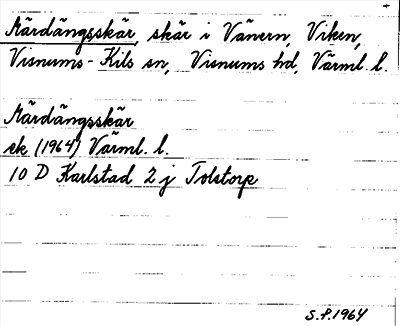 Märdängsskär, skär i Vänern, Viken,
Visnums-Kils sn, Visnums hd, Värml. l.
Märdängsskär
ek (1964) Värml. l.
10 D Karlstad 2 j Tolstorp
S.P. 1964